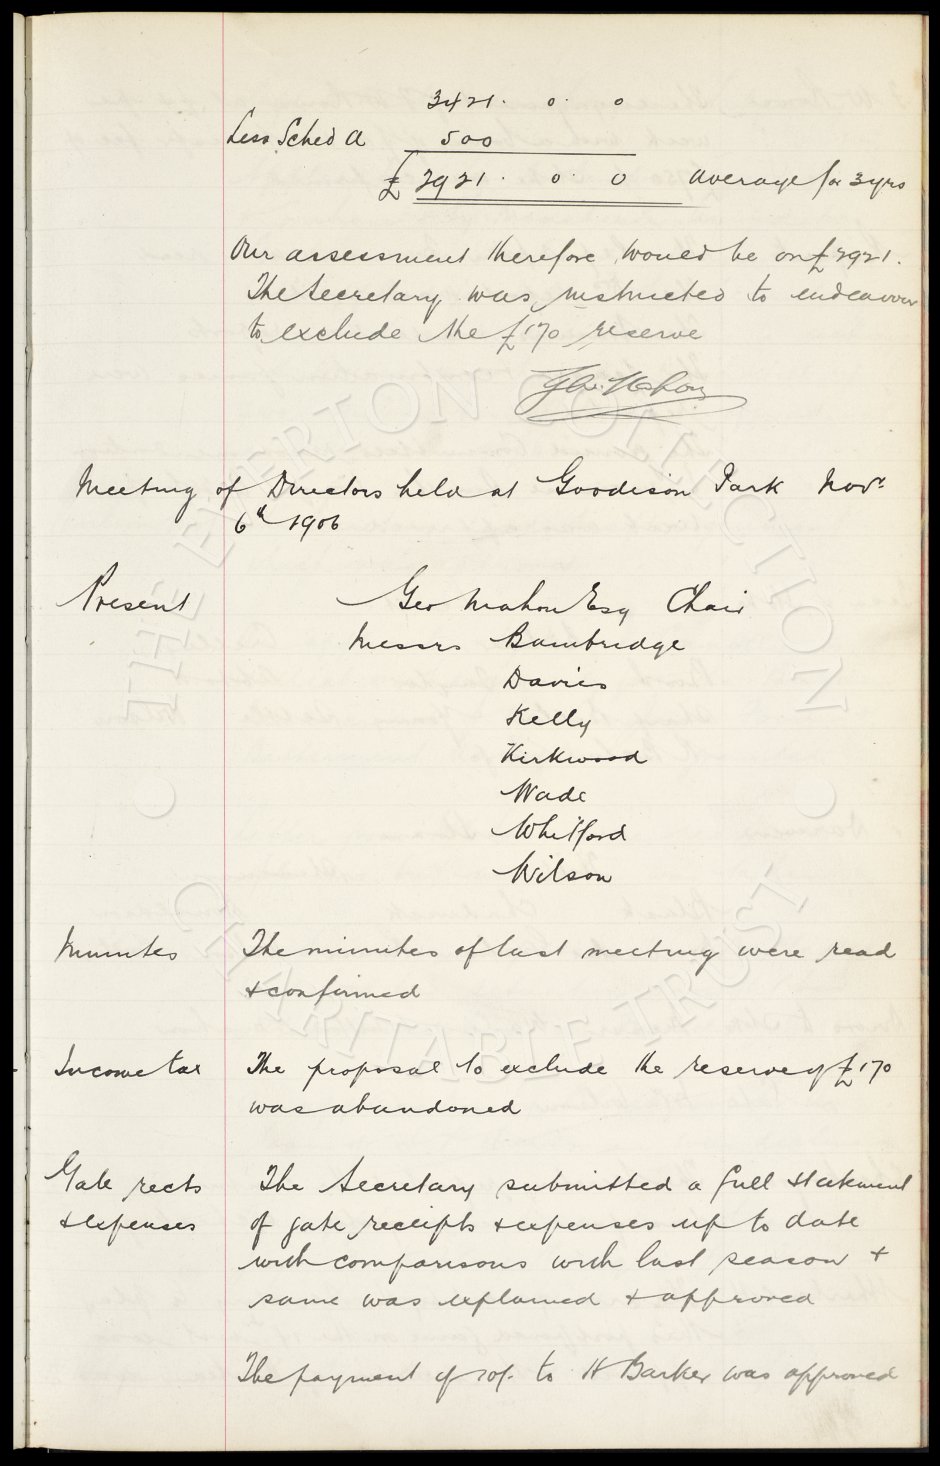 3421. 0. 0
Less Sched A 500
£2921. 0. 0 average for 3 yrs
Our assessment therefore would be on £2921.
The Secretary was instructed to endeavour
to exclude the £170 reserve
Geo. Mahon
Meeting of Directors held at Goodison Park Novr
6th 1906
Present Geo Mahon Esq Chair
Messrs Bainbridge
Davies
Kelly
Kirkwood
Wade
Whitford
Wilson
Minutes The minutes of last meeting were read
& confirmed
Income tax The proposal to exclude the reserve of £170
was abandoned
Gate rects The Secretary submitted a full statement
& expenses of gate receipts & expenses up to date
with comparisons with last season &
same was explained & approved
The payment of 10/- to H Barker was approved
THE EVERTON COLLECTION
CHARITABLE TRUST